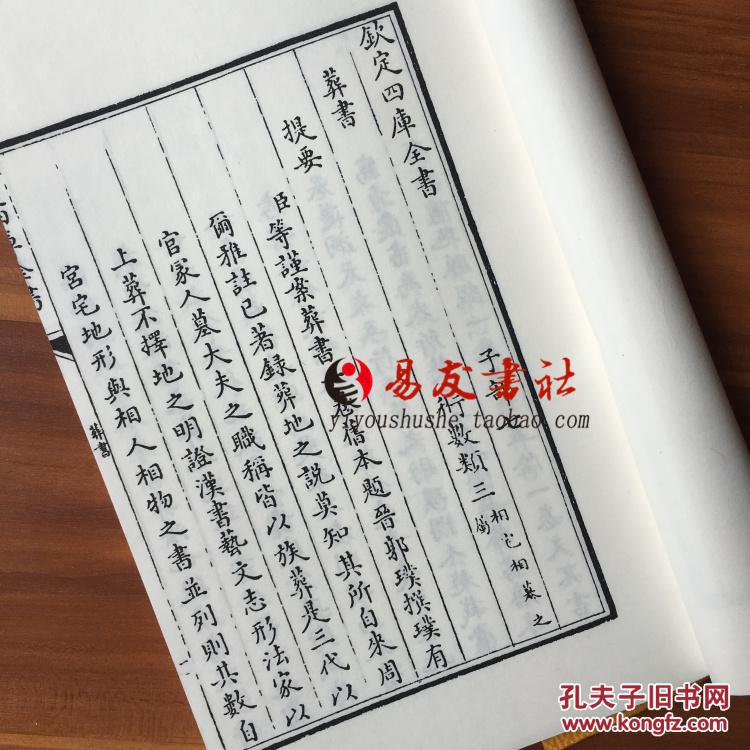 欽定四庫全書
子部
術數類三 相宅相墓之
屬
葬書
提要
臣等謹案葬書一卷舊本題晉郭璞撰璞有
爾雅註已著録葬地之說莫知其所自來周
官冢人墓大夫之職稱皆以族葬是三代以
上葬不擇地之明證漢書藝文志形法家以
宮宅地形與相人相物之書並列則其數自
葬書
易友書社
yiyoushushe.taobao.com
孔夫子旧书网
www.kongfz.com